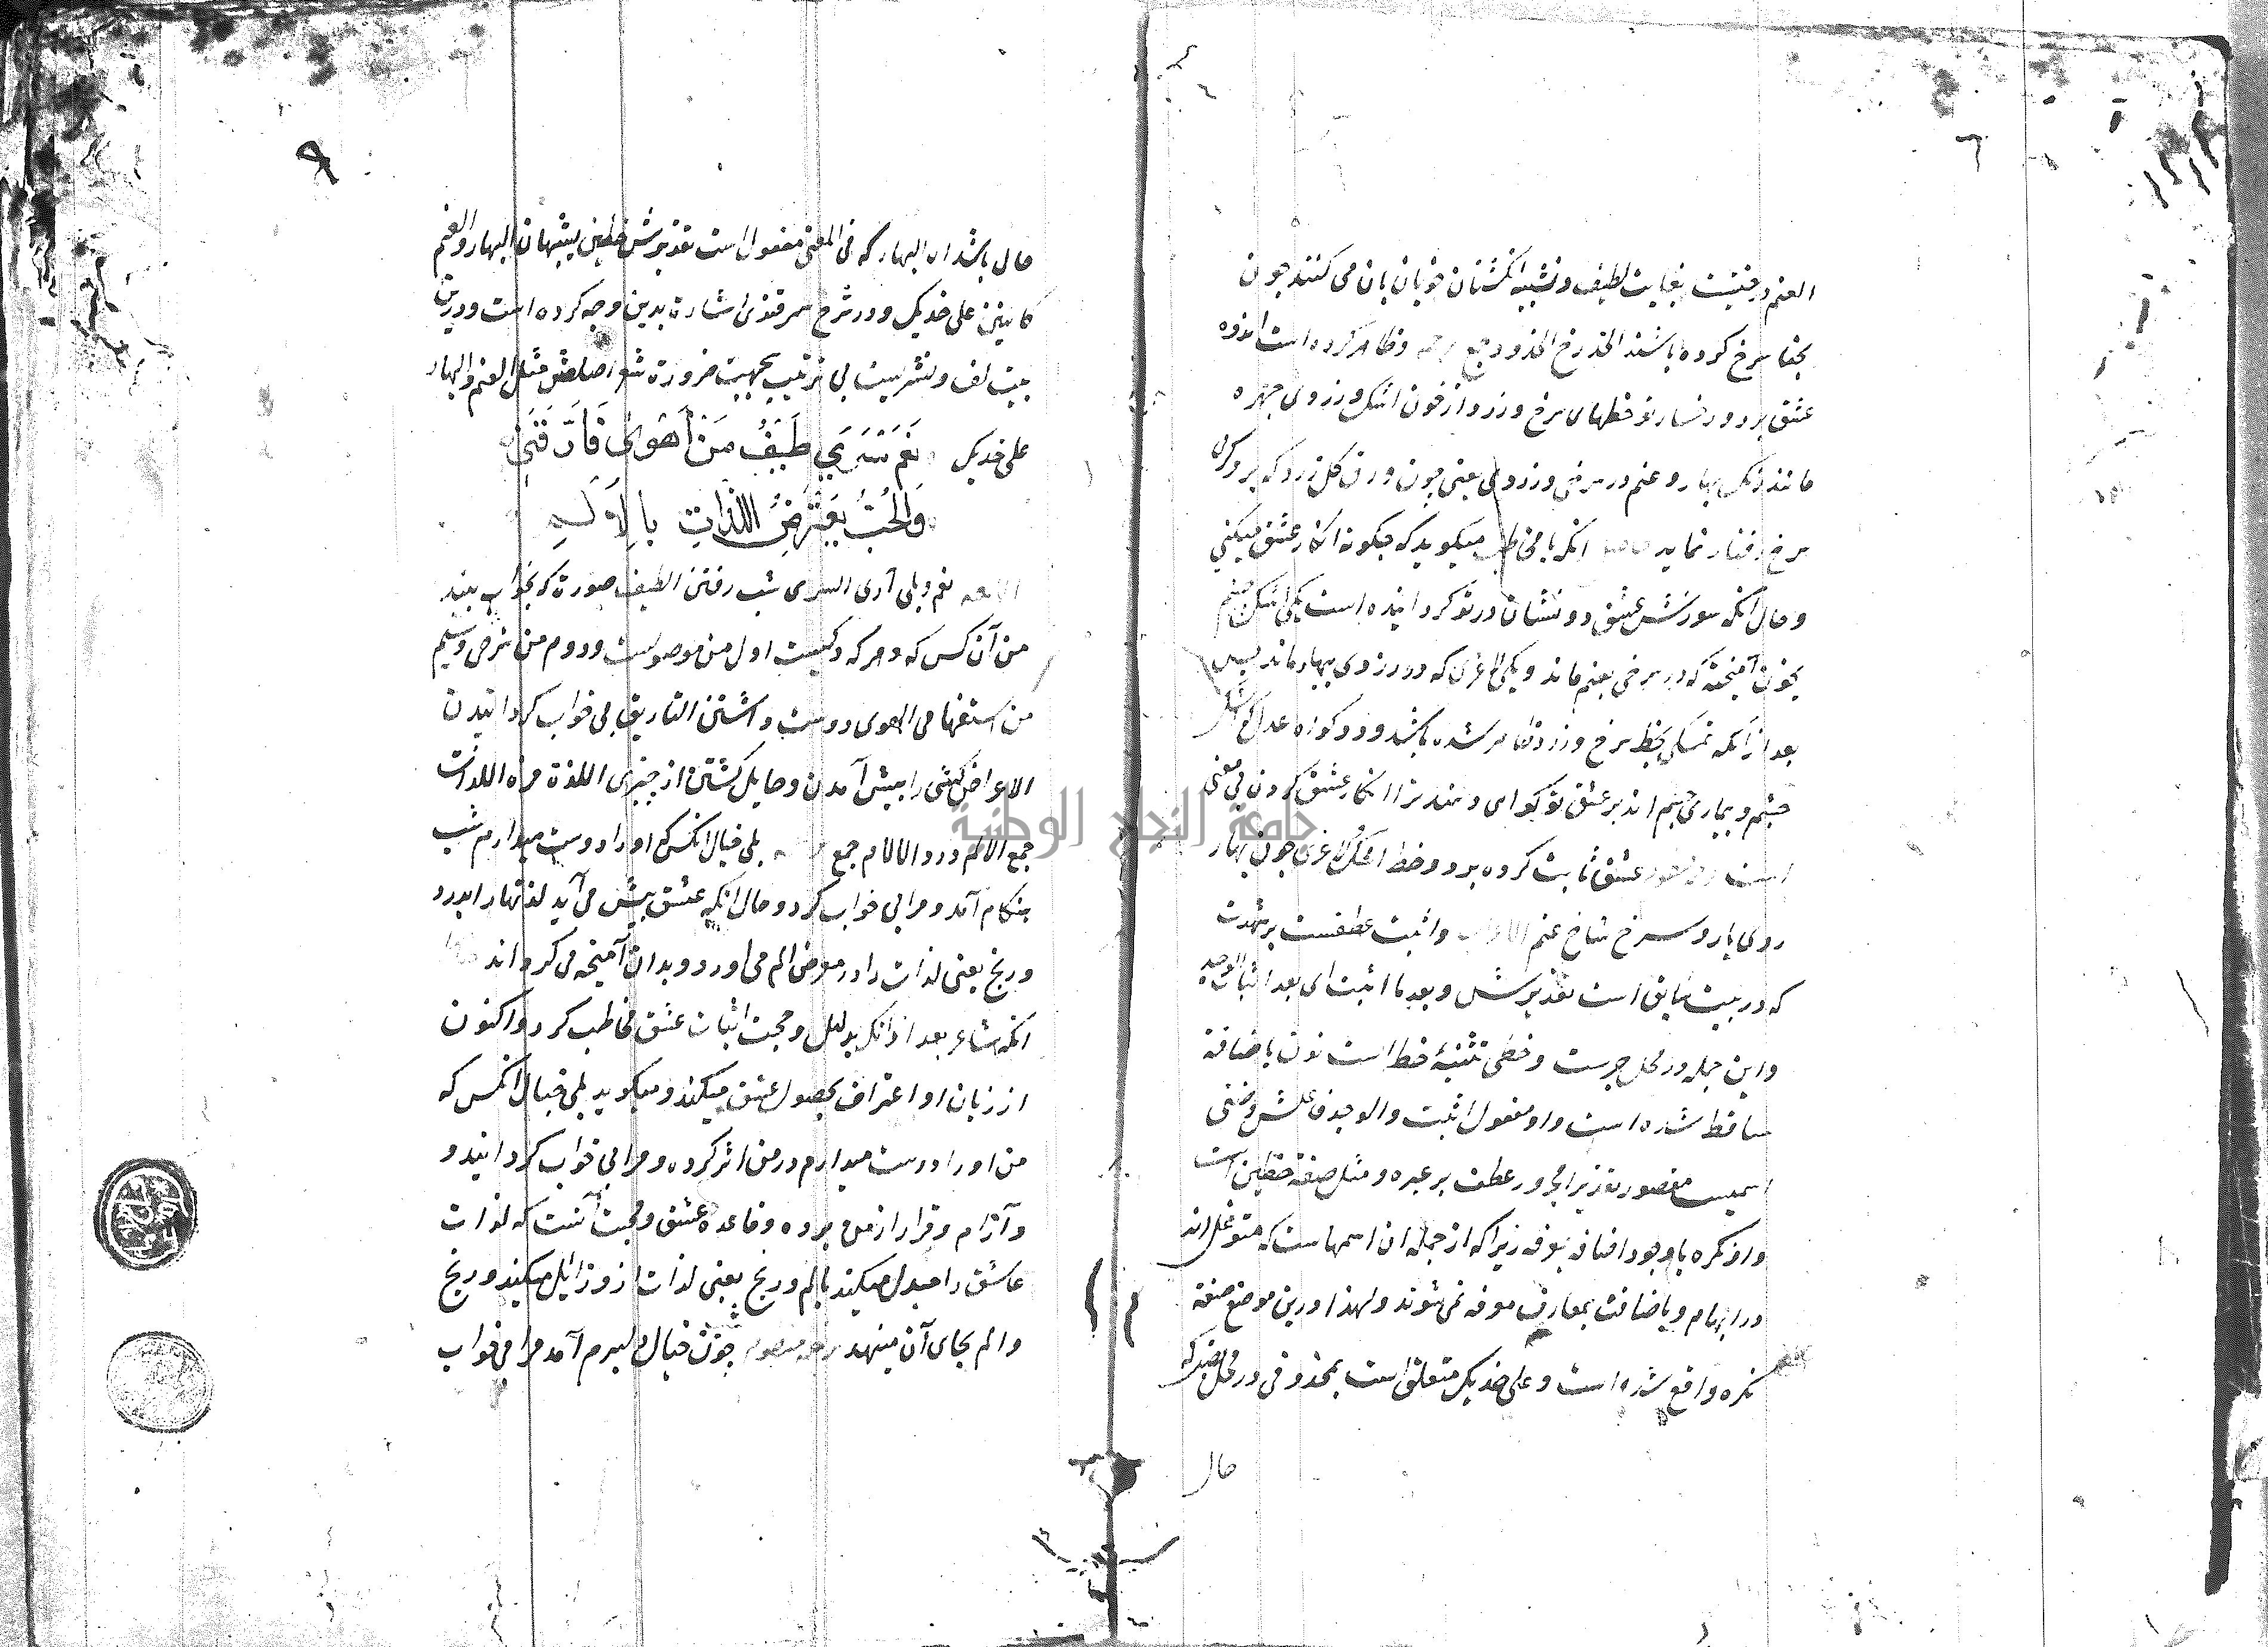 العنم درختیست بغایت لطیف و تشبیه انکشتان خوبان بان می کنند چون
بحنا سرخ کرده باشند الخد رخ الخدود جمع و ظاهر کرده است اندوه
عشق بر دو رخسار تو خطهای سرخ و زرد از خون اشک و زردی چهره
مانند رنک بهار و عنم در سرخی و زردی یعنی چون ورق کل زرد که برو
سرخ رفتار نماید انکه با مخاطب میکوید که چکونه انکار عشق میکنی
و حال آنکه سوزش عشق دو نشان در تو کردانیده است یکی اشک چشم
بخون آمیخته که در سرخی بعنم ماند و یکی لاغری که در زردی ببهار ماند پس
بعد از آنکه تمسکی بخط سرخ و زرد ظاهر شده باشد و دو کواه عدل که اشک
چشم و بیماری جسم اند بر عشق تو کواهی دهند ترا انکار عشق کردن بی معنی
است عشق ثابت کرده بر دو خط اشک لاغری چون بهار
روی یار و سرخ شاخ عنم الاعراب و اثبت عطفست بر شهدت
که در بیت سابق است تقدیرش و بعد ما اثبت ای بعد اثبات الوجد
و این جمله در محل جرست و خطی تثنیهٔ خط است نون باضافة
ساقط شده است و او مفعول اثبت و الوجد فاعلش و ضنی
اسمیست مقصور تقدیرا مجرور عطف بر عبرة و مثل صفة خطین است
و او نکره با وجود اضافه بمعرفه زیرا که از جمله ان اسمهاست که متوغل اند
در ابهام و باضافت بمعارف معرفه نمی شوند و لهذا درین موضع صفة
نکره واقع شده است و علی خدیک متعلق است بمحذوفی در محل نصب که
حال
۹
حال باشد از البهار که فی المعنی مفعول است تقدیرش خطین یشبهان البهار و العنم
کاینین علی خدیک و در شرح سمرقندی اشارة بدین وجه کرده است و درین
بیت لف و نشریست بی ترتیب بجهت ضرورة شعر اصلش مثل العنم و البهار
علی خدیک نَعَمْ سَرَى طَيْفُ مَنْ أَهْوَى فَأَرَّقَنِي
وَالْحُبُّ يَعْتَرِضُ اللَّذَّاتِ بِالأَلَمِ
اللغة نعم و بلی آری السری شب رفتن الطیف صورة که بخواب بیند
من آن کس که و هر که و کیست اول من موصولست و دوم من شرطی و سیم
من استفهامی الهوی دوست داشتن التاریق بی خواب کردانیدن
الاعتراض کسی را پیش آمدن و حایل کشتن از چیزی اللذة مزه اللذات
جمع الالم درد الالام جمع بلی خیال انکس که اورا دوست میدارم شب
هنکام آمد و مرا بی خواب کرد و حال انکه عشق پیش می آید لذتهارا بدرد
و رنج یعنی لذات را در معرض الم می اورد و بدان آمیخته می کرداند
انکه شاعر بعد از انکه بدلیل و حجت اثبات عشق مخاطب کرد و اکنون
از زبان او اعتراف بحصول عشق میکند و میکوید بلی خیال انکس که
من اورا دوست میدارم در من اثر کرده و مرا بی خواب کردانید و
و آرام و قرار از من برده و قاعده عشق و محبت آنست که لذات
عاشق را مبدل میکند بالم و رنج یعنی لذات ازو زائل میکند و رنج
و الم بجای آن مینهد چون خیال دلبرم آمد مرا بی خواب
جامعة النجاح الوطنية